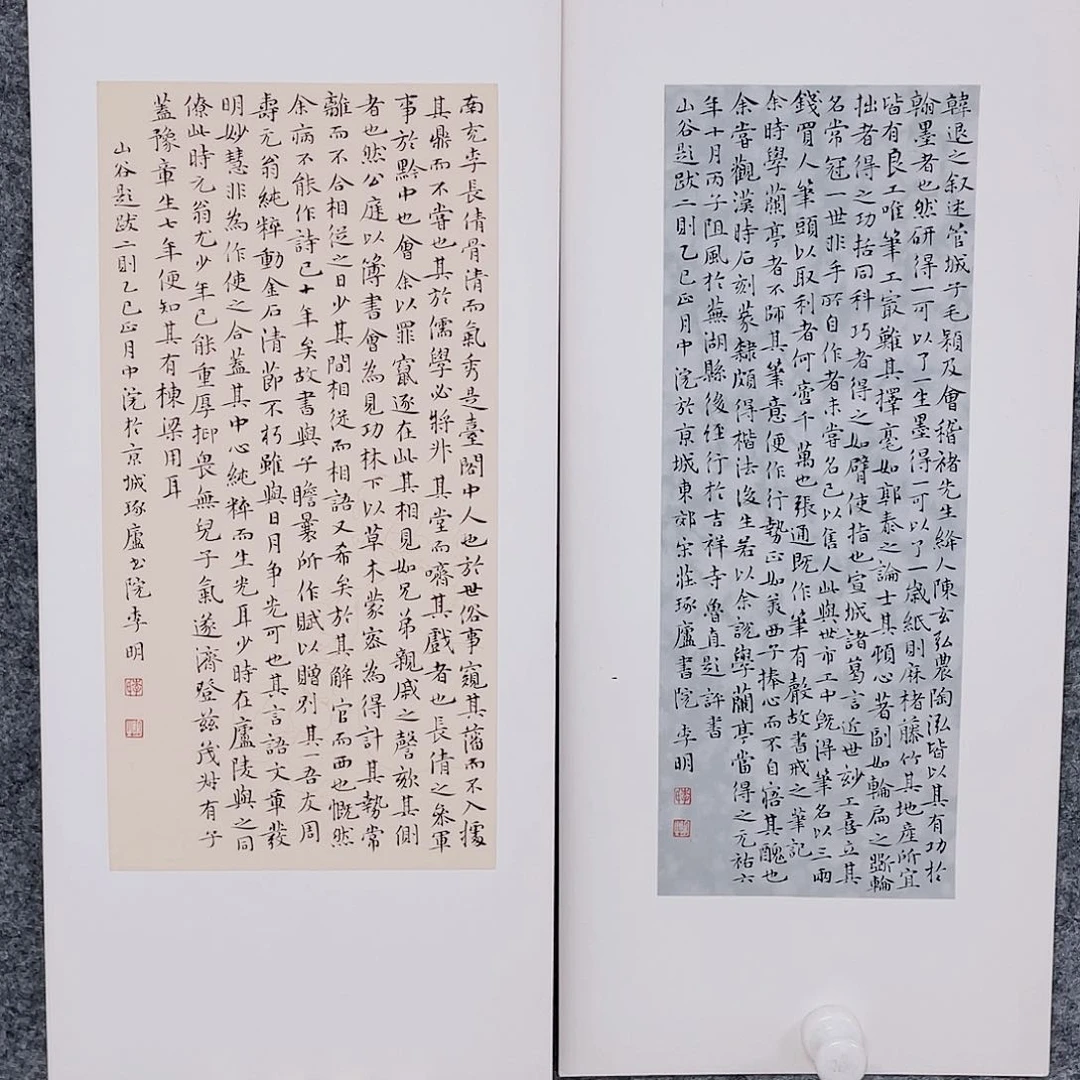 韓退之叙述管城子毛穎及會稽褚先生絳人陳玄弘農陶泓皆以其有功於
翰墨者也然研得一可以了一生墨得一可以了一歲紙則麻楮藤竹其地產所宜
皆有良工唯筆工最難其擇毫如郭泰之論士其頓心著副如輪扁之斲輪
拙者得之功括同科巧者得之如臂使指也宣城諸葛言近世妙工喜立其
名常冠一世非手所自作者未嘗名己以售人此與世市工中既得筆名以三兩
錢買人筆頭以取利者何啻千萬也張通既作筆有聲故書戒之筆記
余時學蘭亭者不師其筆意便作行勢正如美西子捧心而不自寤其醜也
余嘗觀漢時石刻篆隸頗得楷法後生若以余說學蘭亭當得之元祐六
年十月丙子阻風於蕪湖縣後徑行於吉祥寺魯直題評書
山谷題跋二則乙巳正月中浣於京城東郊宋莊琢廬書院 李明
南充李長倩骨清而氣秀是臺閣中人也於世俗事窺其藩而不入擩
其鼎而不嘗也其於儒學必將升其堂而嚌其胾者也長倩之參軍
事於黔中也會余以罪竄逐在此其相見如兄弟親戚之謦欬其側
者也然公庭以簿書會為見功林下以草木蒙密為得計其勢常
離而不合相從之日少其間相從而相語又希矣於其解官而西也慨然
余病不能作詩已十年矣故書與子瞻曩所作賦以贈別其一吾友周
壽元翁純粹動金石清節不朽雖與日月爭光可也其言語文章發
明妙慧非為作使之合蓋其中心純粹而生光耳少時在廬陵與之同
僚此時元翁尤少年已能重厚抑畏無兒子氣遂濟登茲茂對有子
蓋豫章生七年便知其有棟梁用耳
山谷題跋二則乙巳正月中浣於京城琢廬書院李明